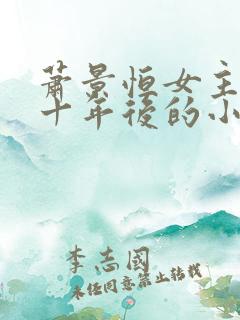 蕭景恒女主
十年後的小
李志國
未经同意禁止转载